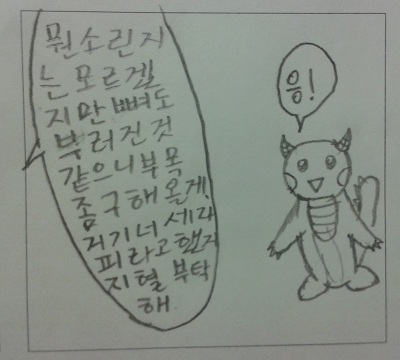 뭔소린지
는모르겔
지만뼈도
부러진것
같으니부목
좀구해올게.
거기너세라
피라고했지
지혈부탁
해.
응!